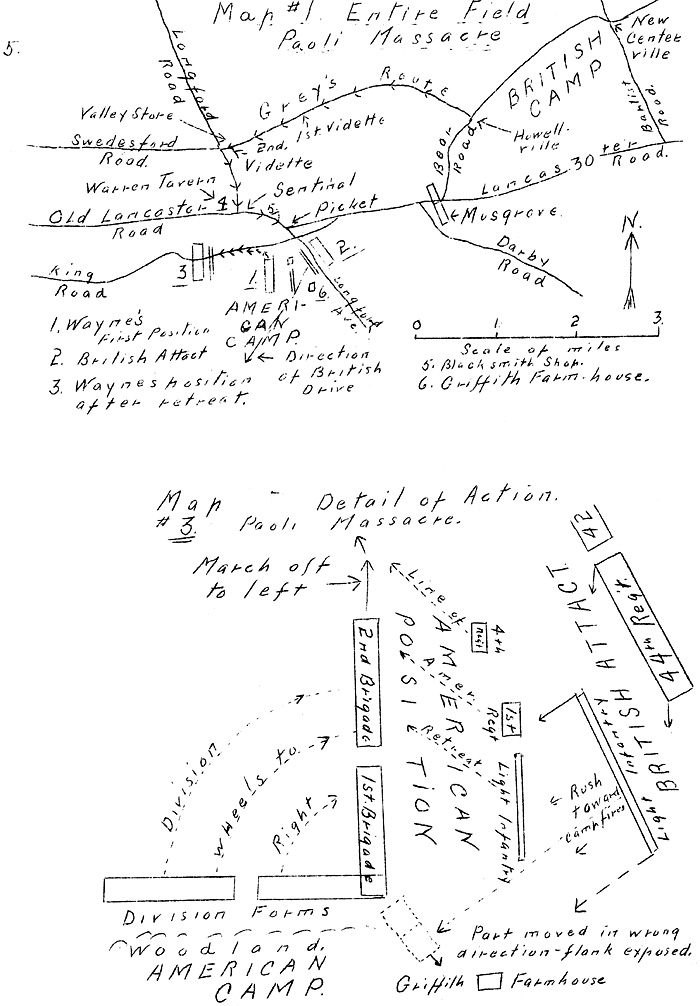 5.
Map #1. Entire Field
Paoli Massacre
New
Center
ville
Longford
Road
Grey's Route
BRITISH
CAMP
Baptist
Road.
Valley Store
1st Vidette
2nd.
Vidette
Howell.
ville
Bear
Road
Swedesford
Road.
Lancas. 30 ter
Road.
Warren Tavern
4
Sentinal
5.
Picket
Musgrove.
Old Lancaster
Road
N.
King
Road
3
1
2.
6.
Longford
Ave.
Darby
Road
AMERI-
CAN
CAMP.
0 1 2 3.
Scale of miles
1. Wayne's
First Position
2. British Attact
3. Waynes position
after retreat.
Direction
of British
Drive
5. Blacksmith Shop.
6. Griffith Farm-house.
Map - Detail of Action.
#3. Paoli Massacre.
March off
to left
42
44th Regt.
BRITISH ATTACT
Line of
Amer.
Retreat
AMERICAN
POSIETION
4th
Regt
1st
Regt
2nd Brigade
1st. Brigade
Light Infantry
Light Infantry
Rush
toward
campfires
Division
Wheels to
Right
Division Forms
Woodland.
AMERICAN
CAMP.
Part moved in wrong
direction-flank exposed.
Griffith Farmhouse